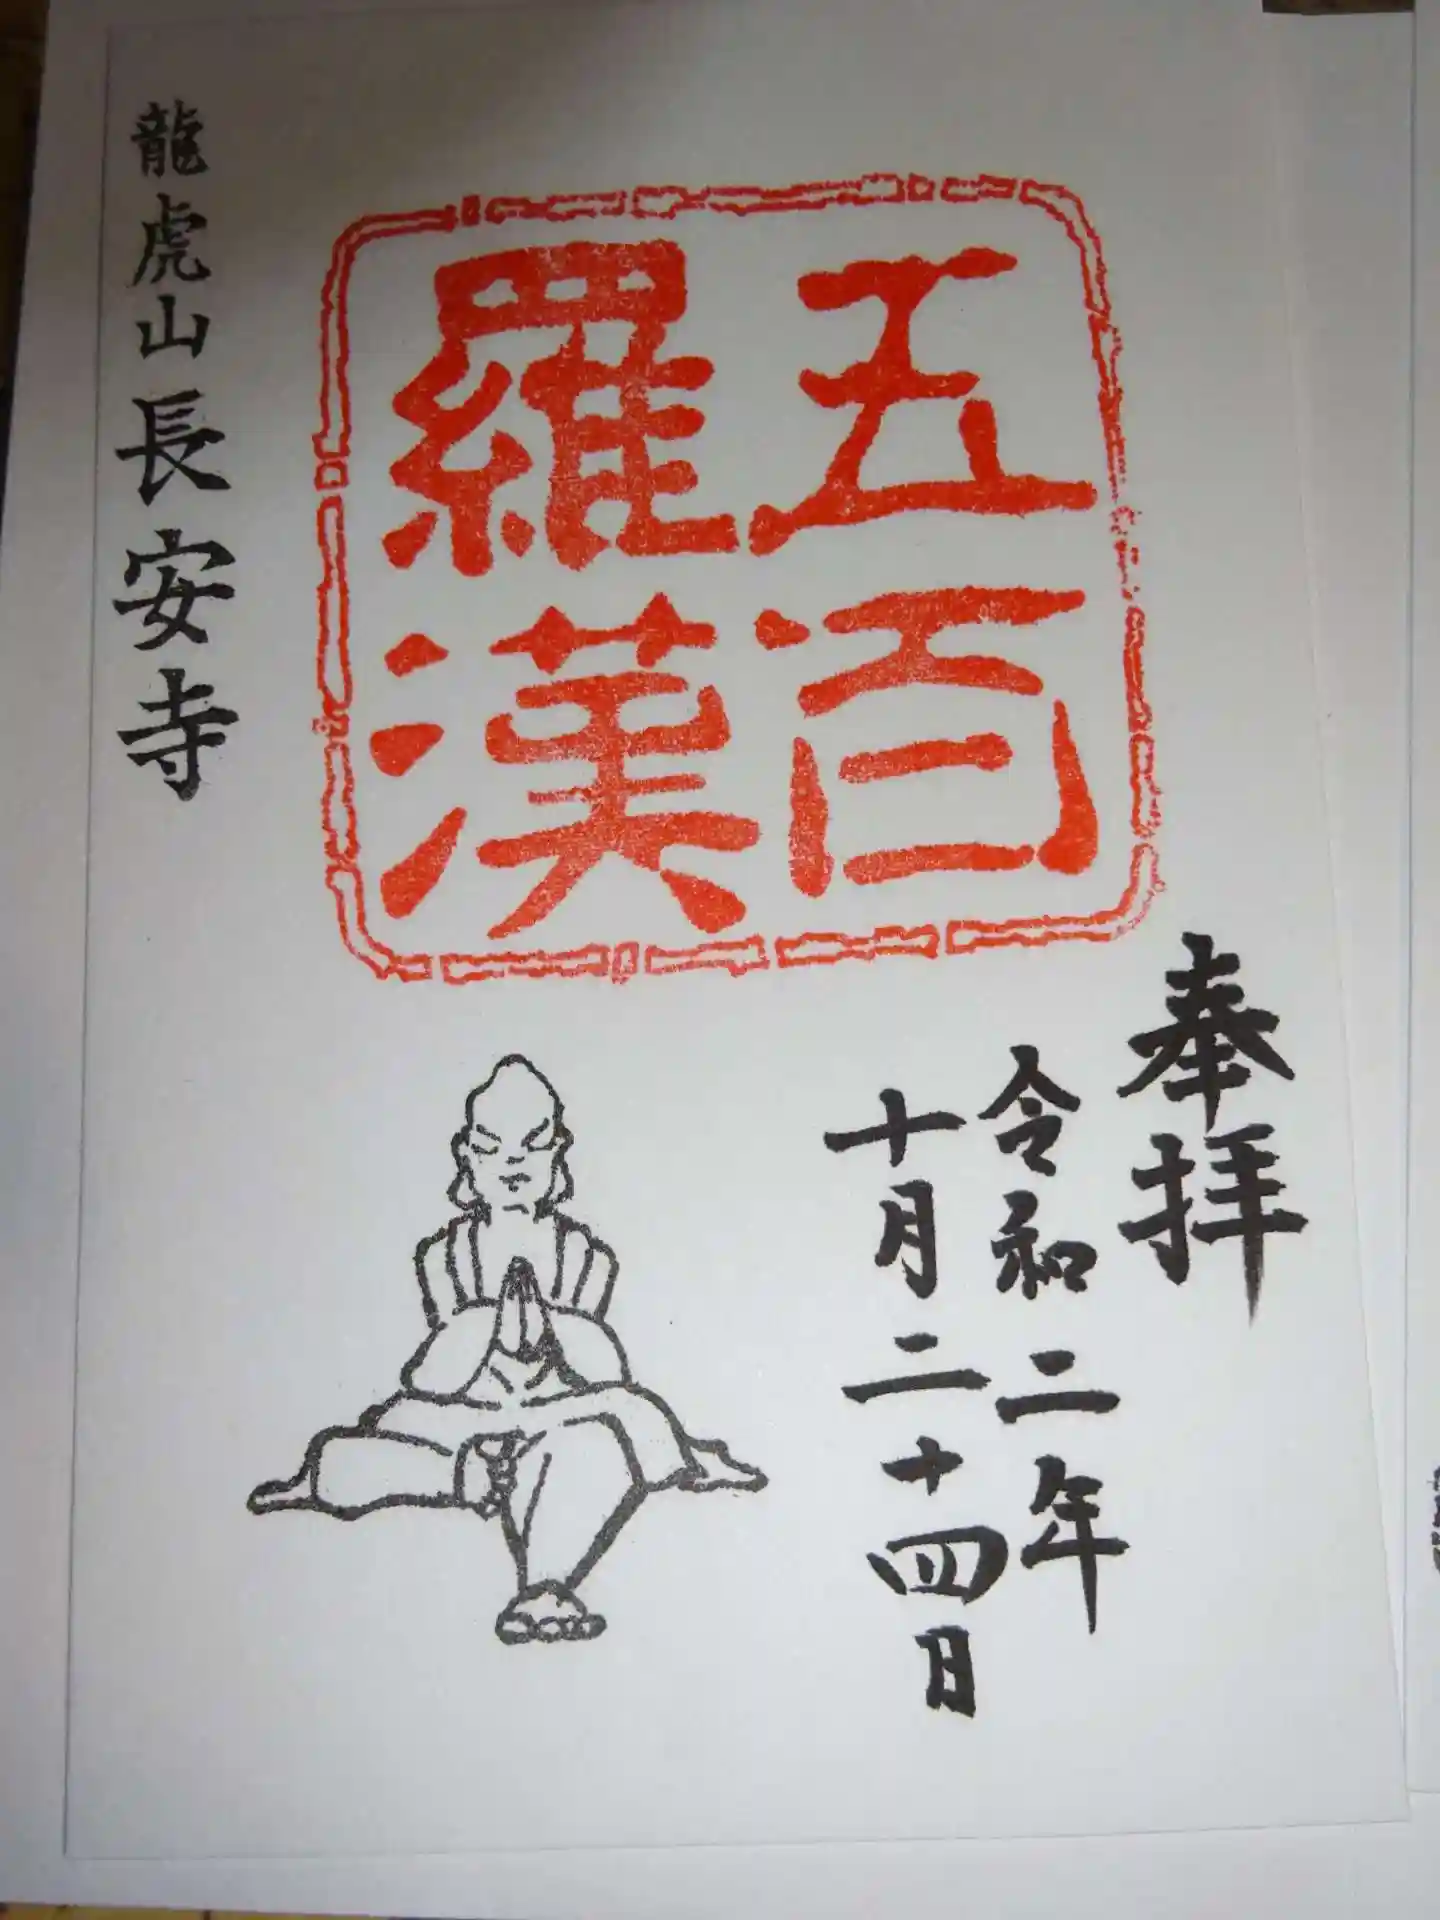 奉拝
令和二年
十月二十四日
五百
羅漢
龍虎山長安寺